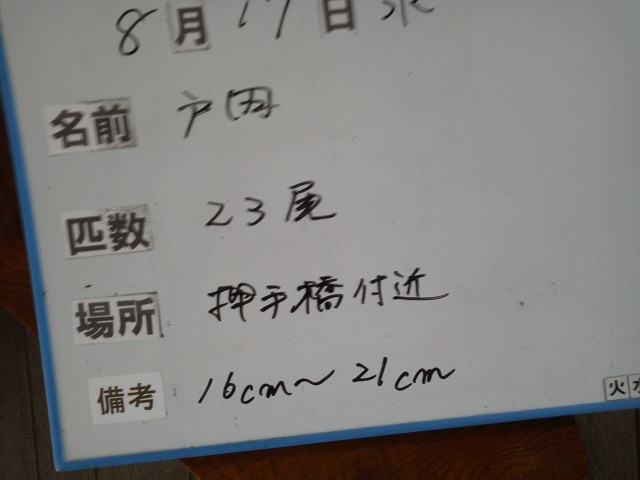 8月17日水
名前 戸田
匹数 23尾
場所 押手橋付近
備考 16cm～21cm
火水